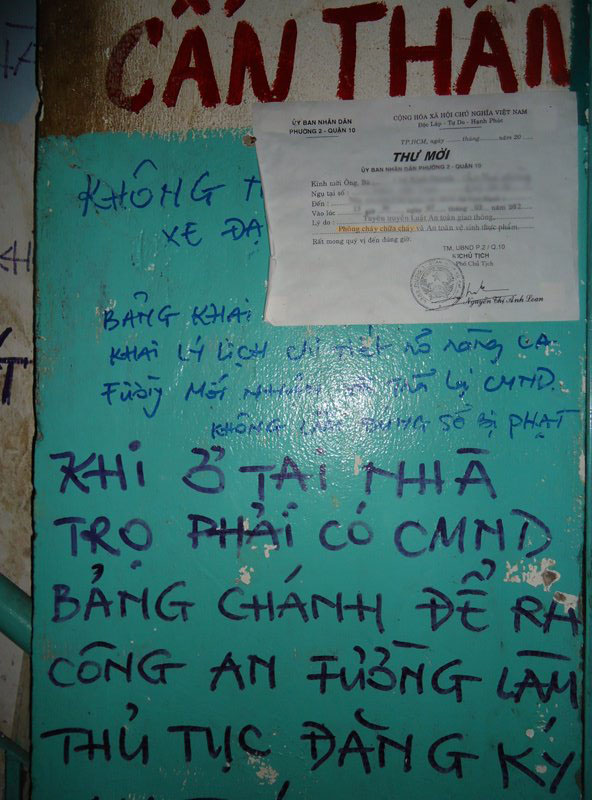 CẨN THẬN
ỦY BAN NHÂN DÂN
PHƯỜNG 2 - QUẬN 10
CỘNG HÒA XÃ HỘI CHỦ NGHĨA VIỆT NAM
Độc Lập - Tự Do - Hạnh Phúc
TP.HCM, ngày ..... tháng ..... năm 20 .....
THƯ MỜI
ỦY BAN NHÂN DÂN PHƯỜNG 2 - QUẬN 10
Kính mời Ông, Bà
Ngụ tại số :
Đến :
Vào lúc
Lý do : Tuyên truyền Luật An toàn giao thông,
Phòng cháy chữa cháy và An toàn vệ sinh thực phẩm.
Rất mong quý vị đến đúng giờ.
TM. UBND P.2 / Q.10
Phó Chủ Tịch
Nguyễn Thị Ánh Loan
KHÔNG
XE ĐẠ
BẢNG KHAI
KHAI LÝ LỊCH CHI TIẾT RỎ RÀNG CA
FƯỜNG MỚI NHẬN CMND.
KHÔNG SỐ BỊ PHẠT
KHI Ở TẠI NHÀ
TRỌ PHẢI CÓ CMND
BẢNG CHÁNH ĐỂ RA
CÔNG AN FƯỜNG LÀM
THỦ TỤC ĐĂNG KÝ